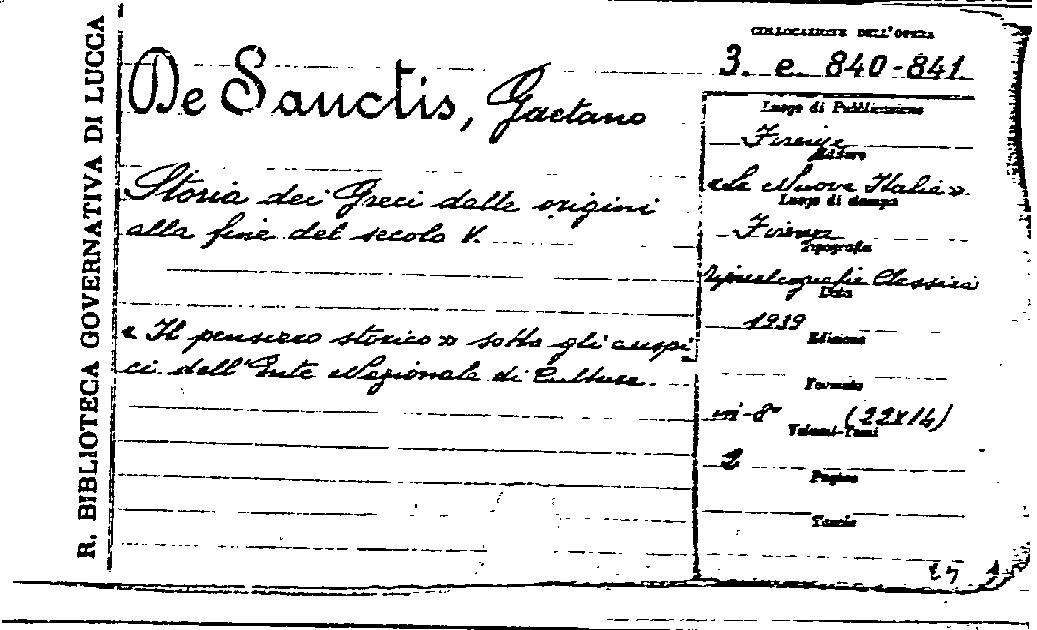 R. BIBLIOTECA GOVERNATIVA DI LUCCA
COLLOCAZIONE DELL'OPERA
3. e. 840-841
De Sanctis, Gaetano
Storia dei Greci dalle origini
alla fine del secolo V.
« Il pensiero storico » sotto gli auspi
ci dell'Ente Nazionale di Cultura.
Luogo di Pubblicazione
Firenze
Editore
« La Nuova Italia »
Luogo di stampa
Firenze
Tipografia
Tipocalcografia Classica
Data
1939
Edizione
Formato
in-8° (22x14)
Volumi-Tomi
2
Pagine
Tavole